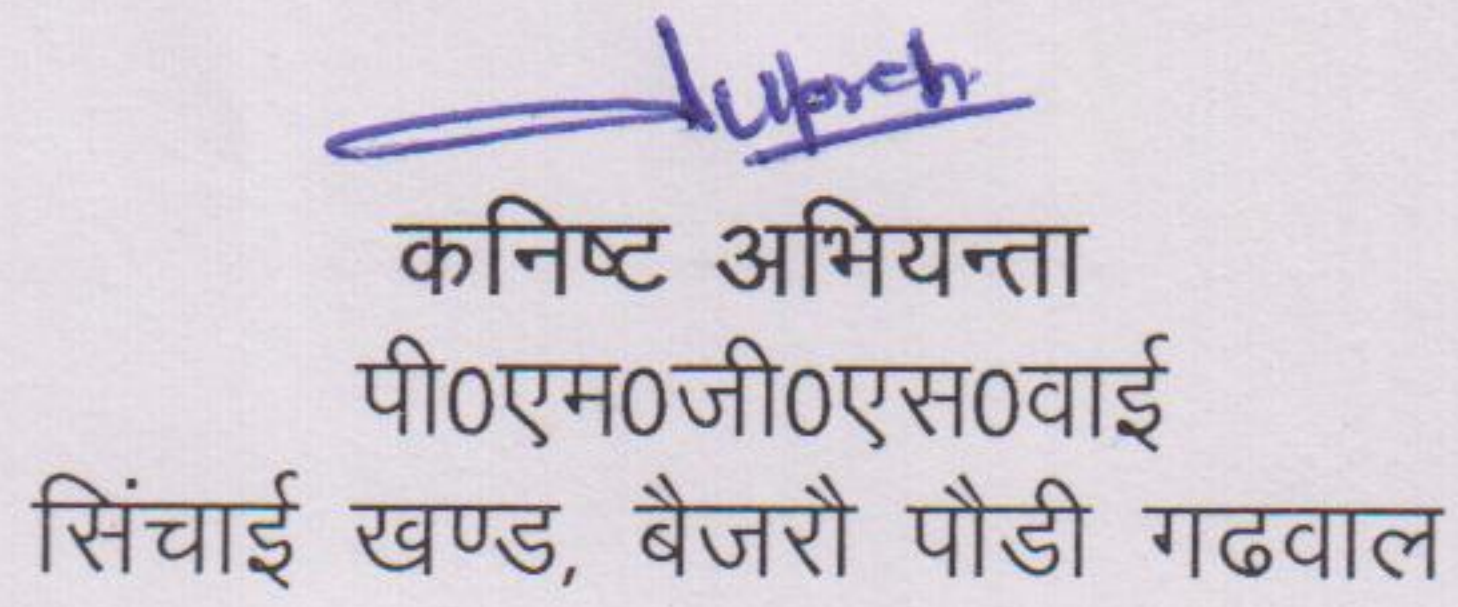 कनिष्ट अभियन्ता
पी0एम0जी0एस0वाई
सिंचाई खण्ड, बैजरौ पौडी गढवाल